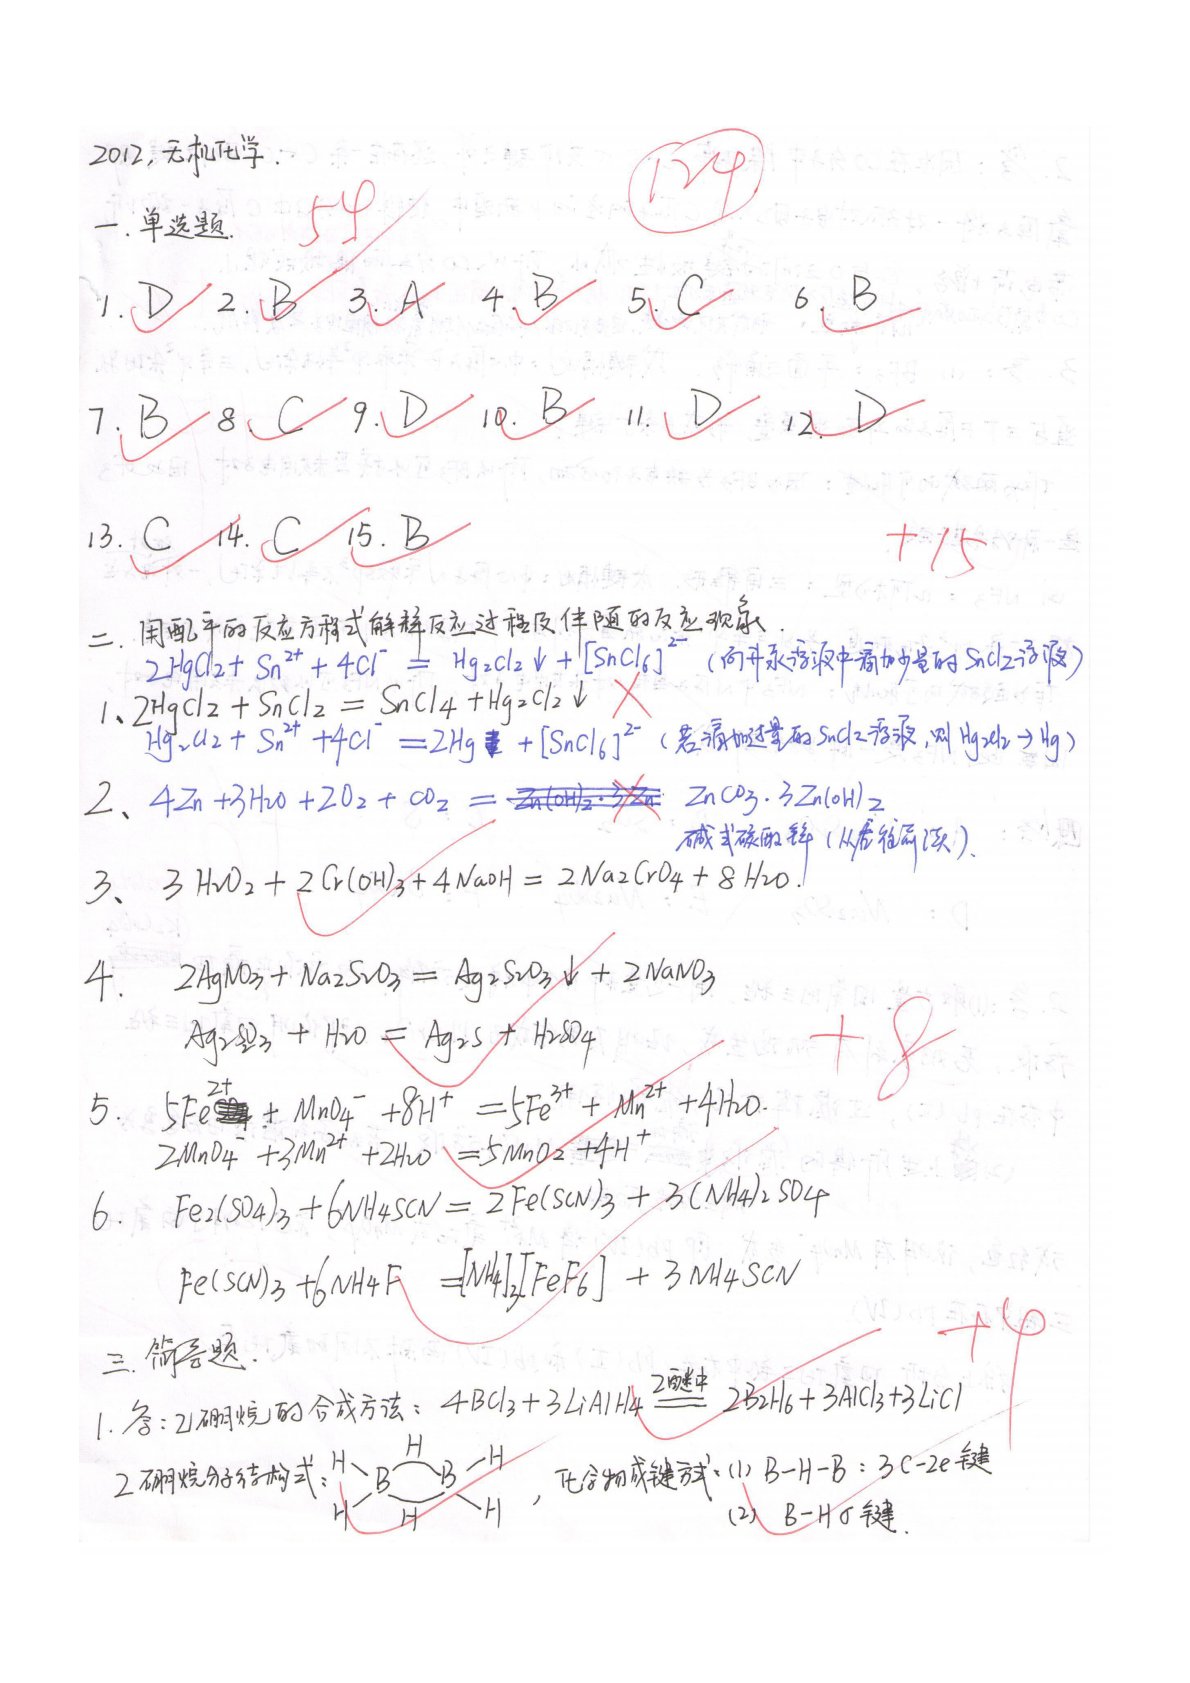 2012, 无机化学.
124
一. 单选题. 54
1. D 2. B 3. A 4. B 5. C 6. B
7. B 8. C 9. D 10. B 11. D 12. D
13. C 14. C 15. B
+15
二. 用配平的反应方程式解释反应过程及伴随的反应现象.
2HgCl2 + Sn²⁺ + 4Cl⁻ = Hg2Cl2↓ + [SnCl6]²⁻ (向升汞溶液中滴加少量的SnCl2溶液)
1、2HgCl2 + SnCl2 = SnCl4 + Hg2Cl2↓
Hg2Cl2 + Sn²⁺ + 4Cl⁻ = 2Hg + [SnCl6]²⁻ (若滴加过量的SnCl2溶液,则Hg2Cl2→Hg)
2、4Zn + 3H2O + 2O2 + CO2 = ZnCO3·3Zn(OH)2
碱式碳酸锌
3、3H2O2 + 2Cr(OH)3 + 4NaOH = 2Na2CrO4 + 8H2O.
4. 2AgNO3 + Na2S2O3 = Ag2S2O3↓ + 2NaNO3
Ag2S2O3 + H2O = Ag2S + H2SO4
+8
5. 5Fe²⁺ + MnO4⁻ + 8H⁺ = 5Fe³⁺ + Mn²⁺ + 4H2O.
2MnO4⁻ + 3Mn²⁺ + 2H2O = 5MnO2 + 4H⁺
6. Fe2(SO4)3 + 6NH4SCN = 2Fe(SCN)3 + 3(NH4)2SO4
Fe(SCN)3 + 6NH4F = [NH4]3[FeF6] + 3NH4SCN
三. 简答题. +4
1. 答: 乙硼烷的合成方法: 4BCl3 + 3LiAlH4 =乙醚中= 2B2H6 + 3AlCl3 + 3LiCl
乙硼烷分子结构式: H H H B B H H H , 化合物成键方式: (1) B-H-B : 3C-2e键
(2) B-H σ键.